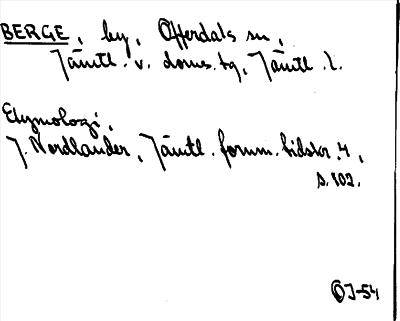 BERGE, by, Offerdals sn,
Jämtl. v. doms. tg, Jämtl. l.
Etymologi,
J. Nordlander, Jämtl. fornm. tidskr. 4,
s. 102.
OJ-54